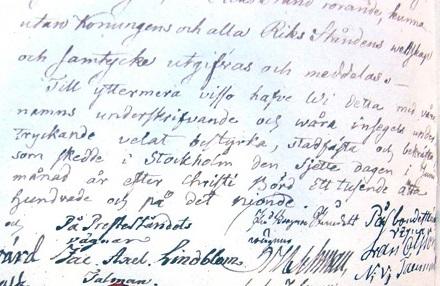 rörande, kunna
utan Konungens och alla Riks Ståndens wettskap
och samtycke utgifvas och meddelas.
Till yttermera visso hafve Wi detta med våra
namns underskrifvande och wåra insegels under
tryckande velat bestyrka, stadfästa och bekräfta
som skedde i Stockholm den sjette dagen i Juni
månad år efter Christi Börd Ett tusende åtta
hundrade och på det nionde.
På Preste Ståndets
vägnar
Jac. Axel. Lindblom
Talman
På Borgare Ståndets
vägnar
På bonde
vägnar